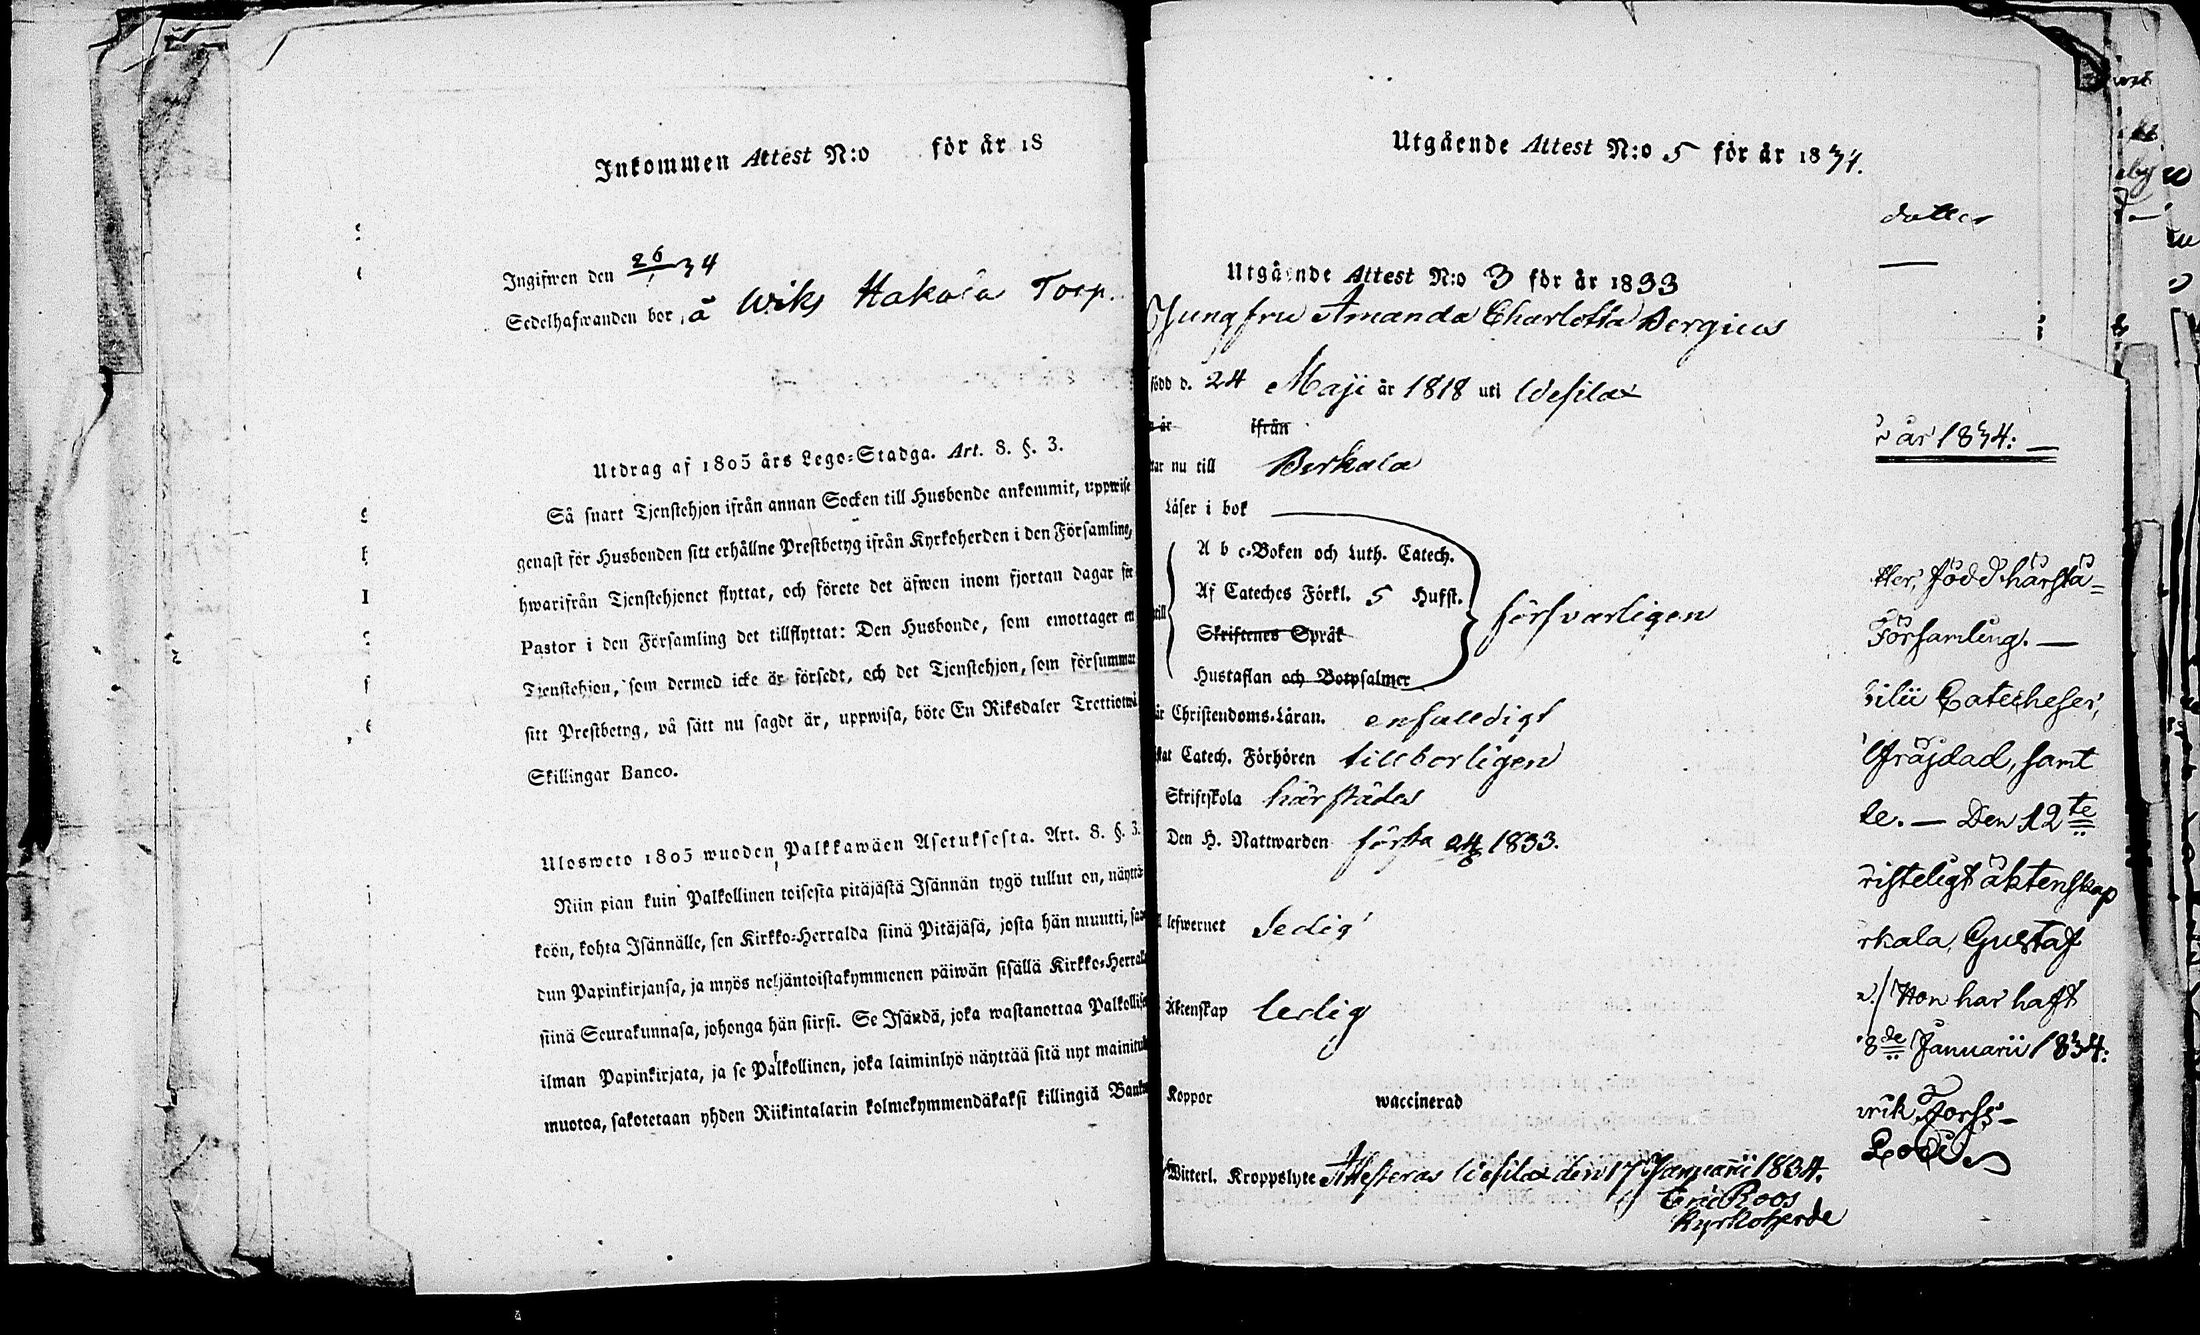 Inkommen Attest N:o för år 18
Ingifwen den 26/1 34
Sedelhafwanden bor å Wiks Hakala Torp.
Utdrag af 1805 års Lego-Stadga. Art. 8. §. 3.
Så snart Tjenstehjon ifrån annan Socken till Husbonde ankommit, uppwise
genast för Husbonden sitt erhållne Prestbetyg ifrån Kyrkoherden i den Församling,
hwarifrån Tjenstehjonet flyttat, och förete det äfwen inom fjortan dagar för
Pastor i den Församling det tillflyttat: Den Husbonde, som emottager en
Tjenstehjon, som dermed icke är försedt, och det Tjenstehjon, som försummar
sitt Prestbetyg, på sätt nu sagdt är, uppwisa, böte En Riksdaler Trettiotwå
Skillingar Banco.
Ulosweto 1805 wuoden Palkkawäen Asetuksesta. Art. 8. §. 3.
Niin pian kuin Palkollinen toisesta pitäjästä Isännän tygö tullut on, näyttä-
köön, kohta Isännälle, sen Kirkko-Herralda siinä Pitäjäsä, josta hän muutti, saa-
dun Papinkirjansa, ja myös neljäntoistakymmenen päiwän sisällä Kirkko-Herralle
siinä Seurakunnasa, johonga hän siirsi. Se Isändä, joka wastanottaa Palkollisen
ilman Papinkirjata, ja se Palkollinen, joka laiminlyö näyttää sitä nyt mainitulla
muotoa, sakotetaan yhden Riikintalarin kolmekymmendäkaksi killingiä Bankos
Utgående Attest N:o 5 för år 1834.
dotter
Utgående Attest N:o 3 för år 1833
Jungfru Amanda Charlotta Bergius
född d. 24 Maji år 1818 uti Wesilax
år ifrån
tar nu till Birkala
Läser i bok
A b c-Boken och Luth. Catech.
Af Cateches Förkl. 5 Hufst.
till försvarligen
Skriftenes Språk
Hustaflan och Botpsalmer
är Christendoms-Läran. enfaldigt
kat Catech. Förhören tillbörligen
Skriftskola härstädes
Den H. Nattwarden första 24/6 1833.
lefwernet Sedig
Äktenskap ledig
Koppor waccinerad
Witterl. Kroppslyte Attesteras Wesilax den 17 Januarii 1834.
Eric Roos
Kyrkoherde
år 1834:
tter, född härstä-
Församling.
Catecheser,
fräjdad, samt
de. — Den 12te
risteligt äktenskap
rkala, Gustaf
Hon har haft
8de Januarii 1834: